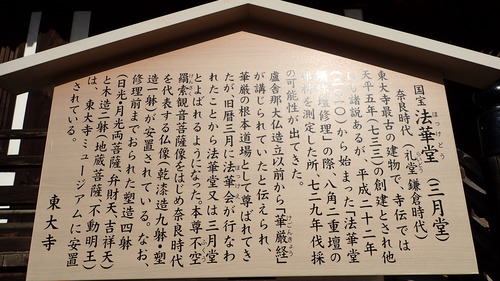 国宝 法華堂(三月堂)
ほっけどう
奈良時代(礼堂 鎌倉時代)
東大寺最古の建物で、寺伝では
天平五年(七三三)の創建とされ他
にも諸説あるが、平成二十二年
(二〇一〇)から始まった「法華堂
須弥壇修理」の際、八角二重壇の
を測定した所、七二九年伐採
の可能性が出てきた。
盧舎那大仏造立以前から「華厳経」
けごんきょう
が講じられていたと伝えられ、
華厳の根本道場として尊ばれてき
たが、旧暦三月に法華会が行なわ
れたことから法華堂又は三月堂
とよばれるようになった。本尊不空
羂索観音菩薩像をはじめ奈良時代
を代表する仏像(乾漆造九躰・塑
造一躰)が安置されている。なお、
修理前までおられた塑造四躰
(日光・月光両菩薩・弁財天、吉祥天)
と木造二躰(地蔵菩薩・不動明王)
は、東大寺ミュージアムに安置
されている。
東大寺